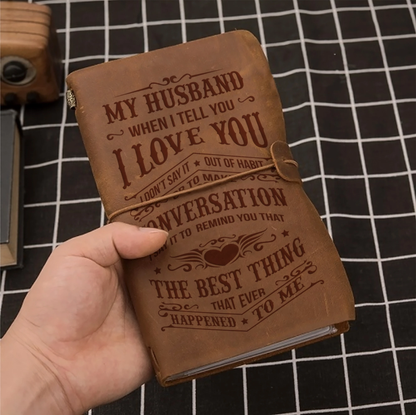 MY HUSBAND
WHEN I TELL YOU
I LOVE YOU
I DON'T SAY IT ★ OUT OF HABIT
TO
CONVERSATION
IT TO REMIND YOU THAT
THE BEST THING
THAT EVER
HAPPENED ★ TO ME